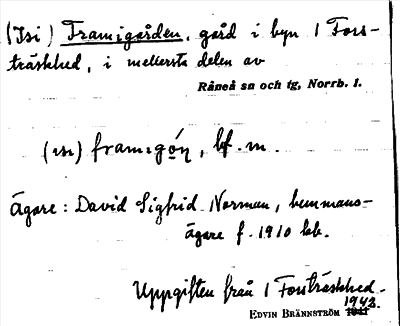 (Isi) Framigården, gård i byn 1 Fors-
träskhed, i mellersta delen av
Råneå sn och tg, Norrb. l.
(ısı) framıgọ́n, bf. m.
Ägare: David Sigfrid Norman, hemmans-
ägare f. 1910 hb.
Uppgiften från 1 Forsträskhed.
1942.
EDVIN BRÄNNSTRÖM 1941